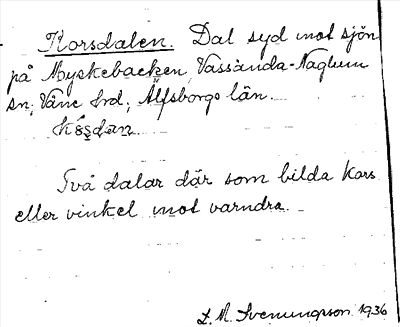 Korsdalen. Dal syd mot sjön
på Myskebacken, Vassända-Naglum
sn; Väne hrd; Älfsborgs län.
Kósdan
Två dalar där som bilda kors
eller vinkel mot varndra.
L. M. Svenungson 1936